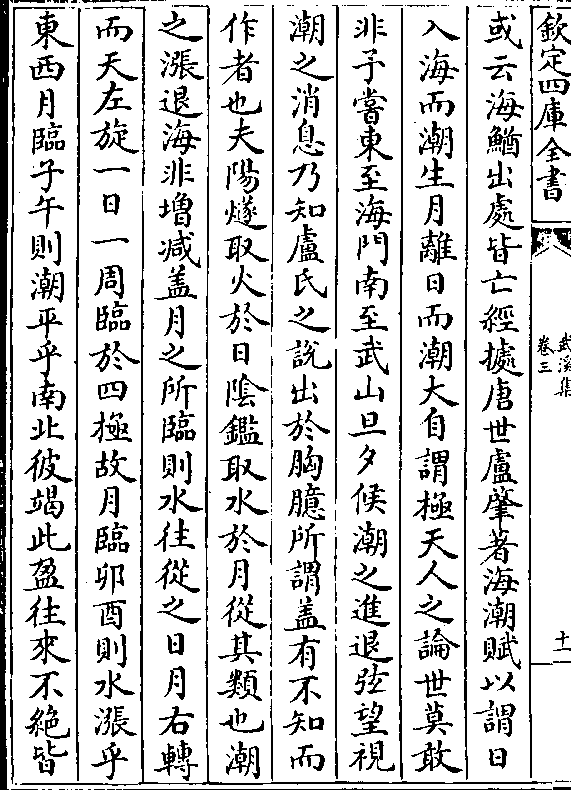 欽定四庫全書
武溪集
卷三
十一
或云海鰌出處皆亡經據唐世盧肇著海潮賦以謂日
入海而潮生月離日而潮大自謂極天人之論世莫敢
非予嘗東至海門南至武山旦夕候潮之進退弦望視
潮之消息乃知盧氏之說出於胸臆所謂盖有不知而
作者也夫陽燧取火於日陰鑑取水於月從其類也潮
之漲退海非增减盖月之所臨則水往從之日月右轉
而天左旋一日一周臨於四極故月臨卯酉則水漲乎
東西月臨子午則潮平乎南北彼竭此盈往來不絶皆